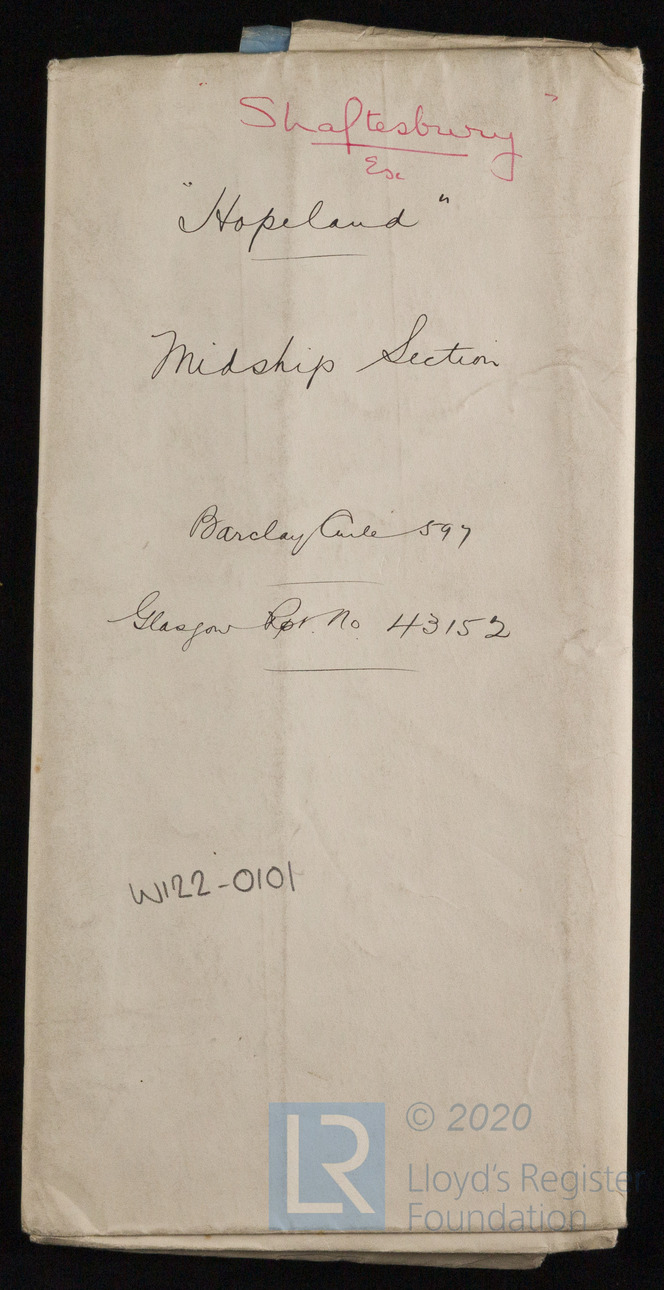 "Shaftesbury"
Ex
"Hopeland"
Midship Section
Barclay Curle 597
Glasgow Rpt. No. 43152
W122-0101
LR
© 2020
Lloyd's Register
Foundation